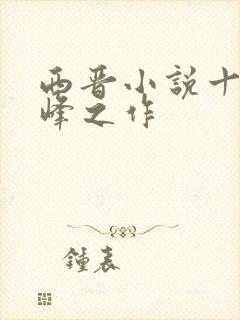 西晋小说十
峰之作
钟表